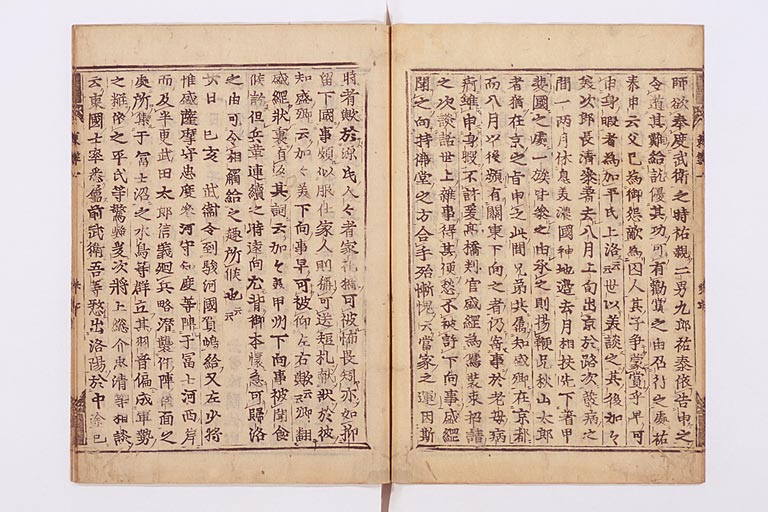 師欲奉度武衛之時祐親二男九郎祐泰依告申之
令遁其難給訖優其功可有勸賞之由召行之處祐
泰申云父已為御怨敵為囚人其子争蒙賞乎早可
申身暇者為加平氏上洛云々世以美談之其後加々
美次郎長清参着去八月上旬出京於路次發病之
間一両月休息美濃國神地邊去月相扶先下着甲
斐國之處一族皆参之由承之則揚鞭兄秋山太郎
者猶在京之旨申之此間兄弟共属知盛卿在京都
而八月以後頻有関東下向之志仍寄事於老母病
痾雖申身暇不許爰高橋判官盛綱為鷹装束招請
之次談話世上雑事得其便愁不被許下向事盛綱
聞之向持佛堂之方合手殆慚愧云當家之運因斯
時者歟於源氏人々者家礼猶可被怖畏矧亦如抑
留下國事頗似服仕家人則稱可送短札献状於彼
知盛卿云加々美下向事早可被仰左右歟云々卿翻
盛綱状裏有返其詞云加々美甲州下向事被聞食
候訖但兵革連續之時遠向尤背御本懐忩可歸洛
之由可令相觸給之趣所候也云々
廿日己亥 武衛令到駿河國賀嶋給又左少将
惟盛薩摩守忠度参河守知度等陣于冨士河西岸
而及半更武田太郎信義廻兵略潜襲件陣後面之
處所集于冨士沼之水鳥等群立其羽音偏成軍勢
之粧依之平氏等驚騒爰次将上総介忠清等相談
云東國士卒悉属前武衛吾等憖出洛陽於中途已